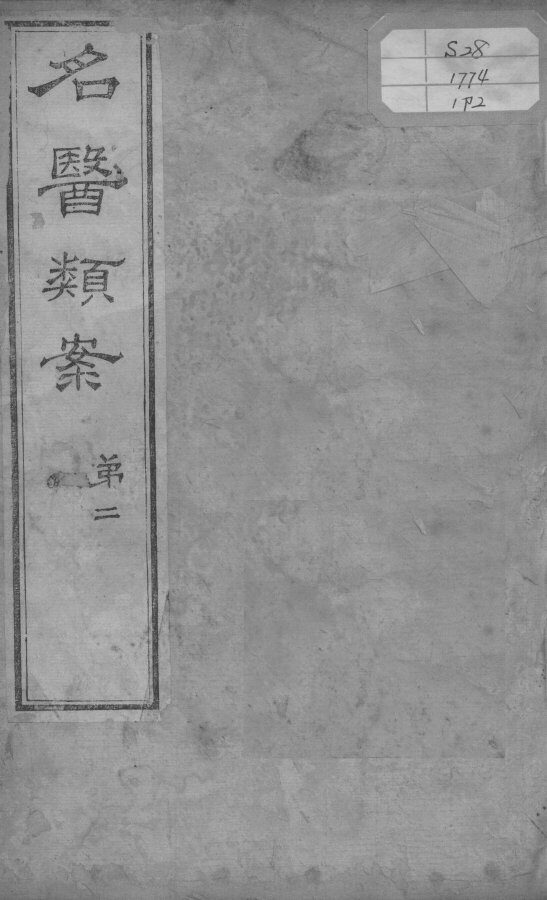 名醫類案
第二
S28
1774
1P2